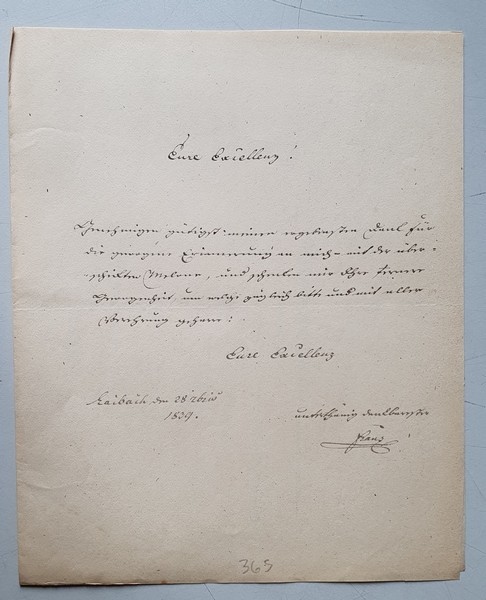 Eure Excellenz!
Genehmigen gütigst meinen ergebensten Dank für
die gewogene Erinnerung an mich mit der über-
schickten Melone, und schenken mir Ihre fernere
Gewogenheit, um welche zugleich bitte und mit aller
Verehrung geharre:
Eure Excellenz
Laibach den 28 7bris
1839.
unterthänig dankbarster
Franz
365